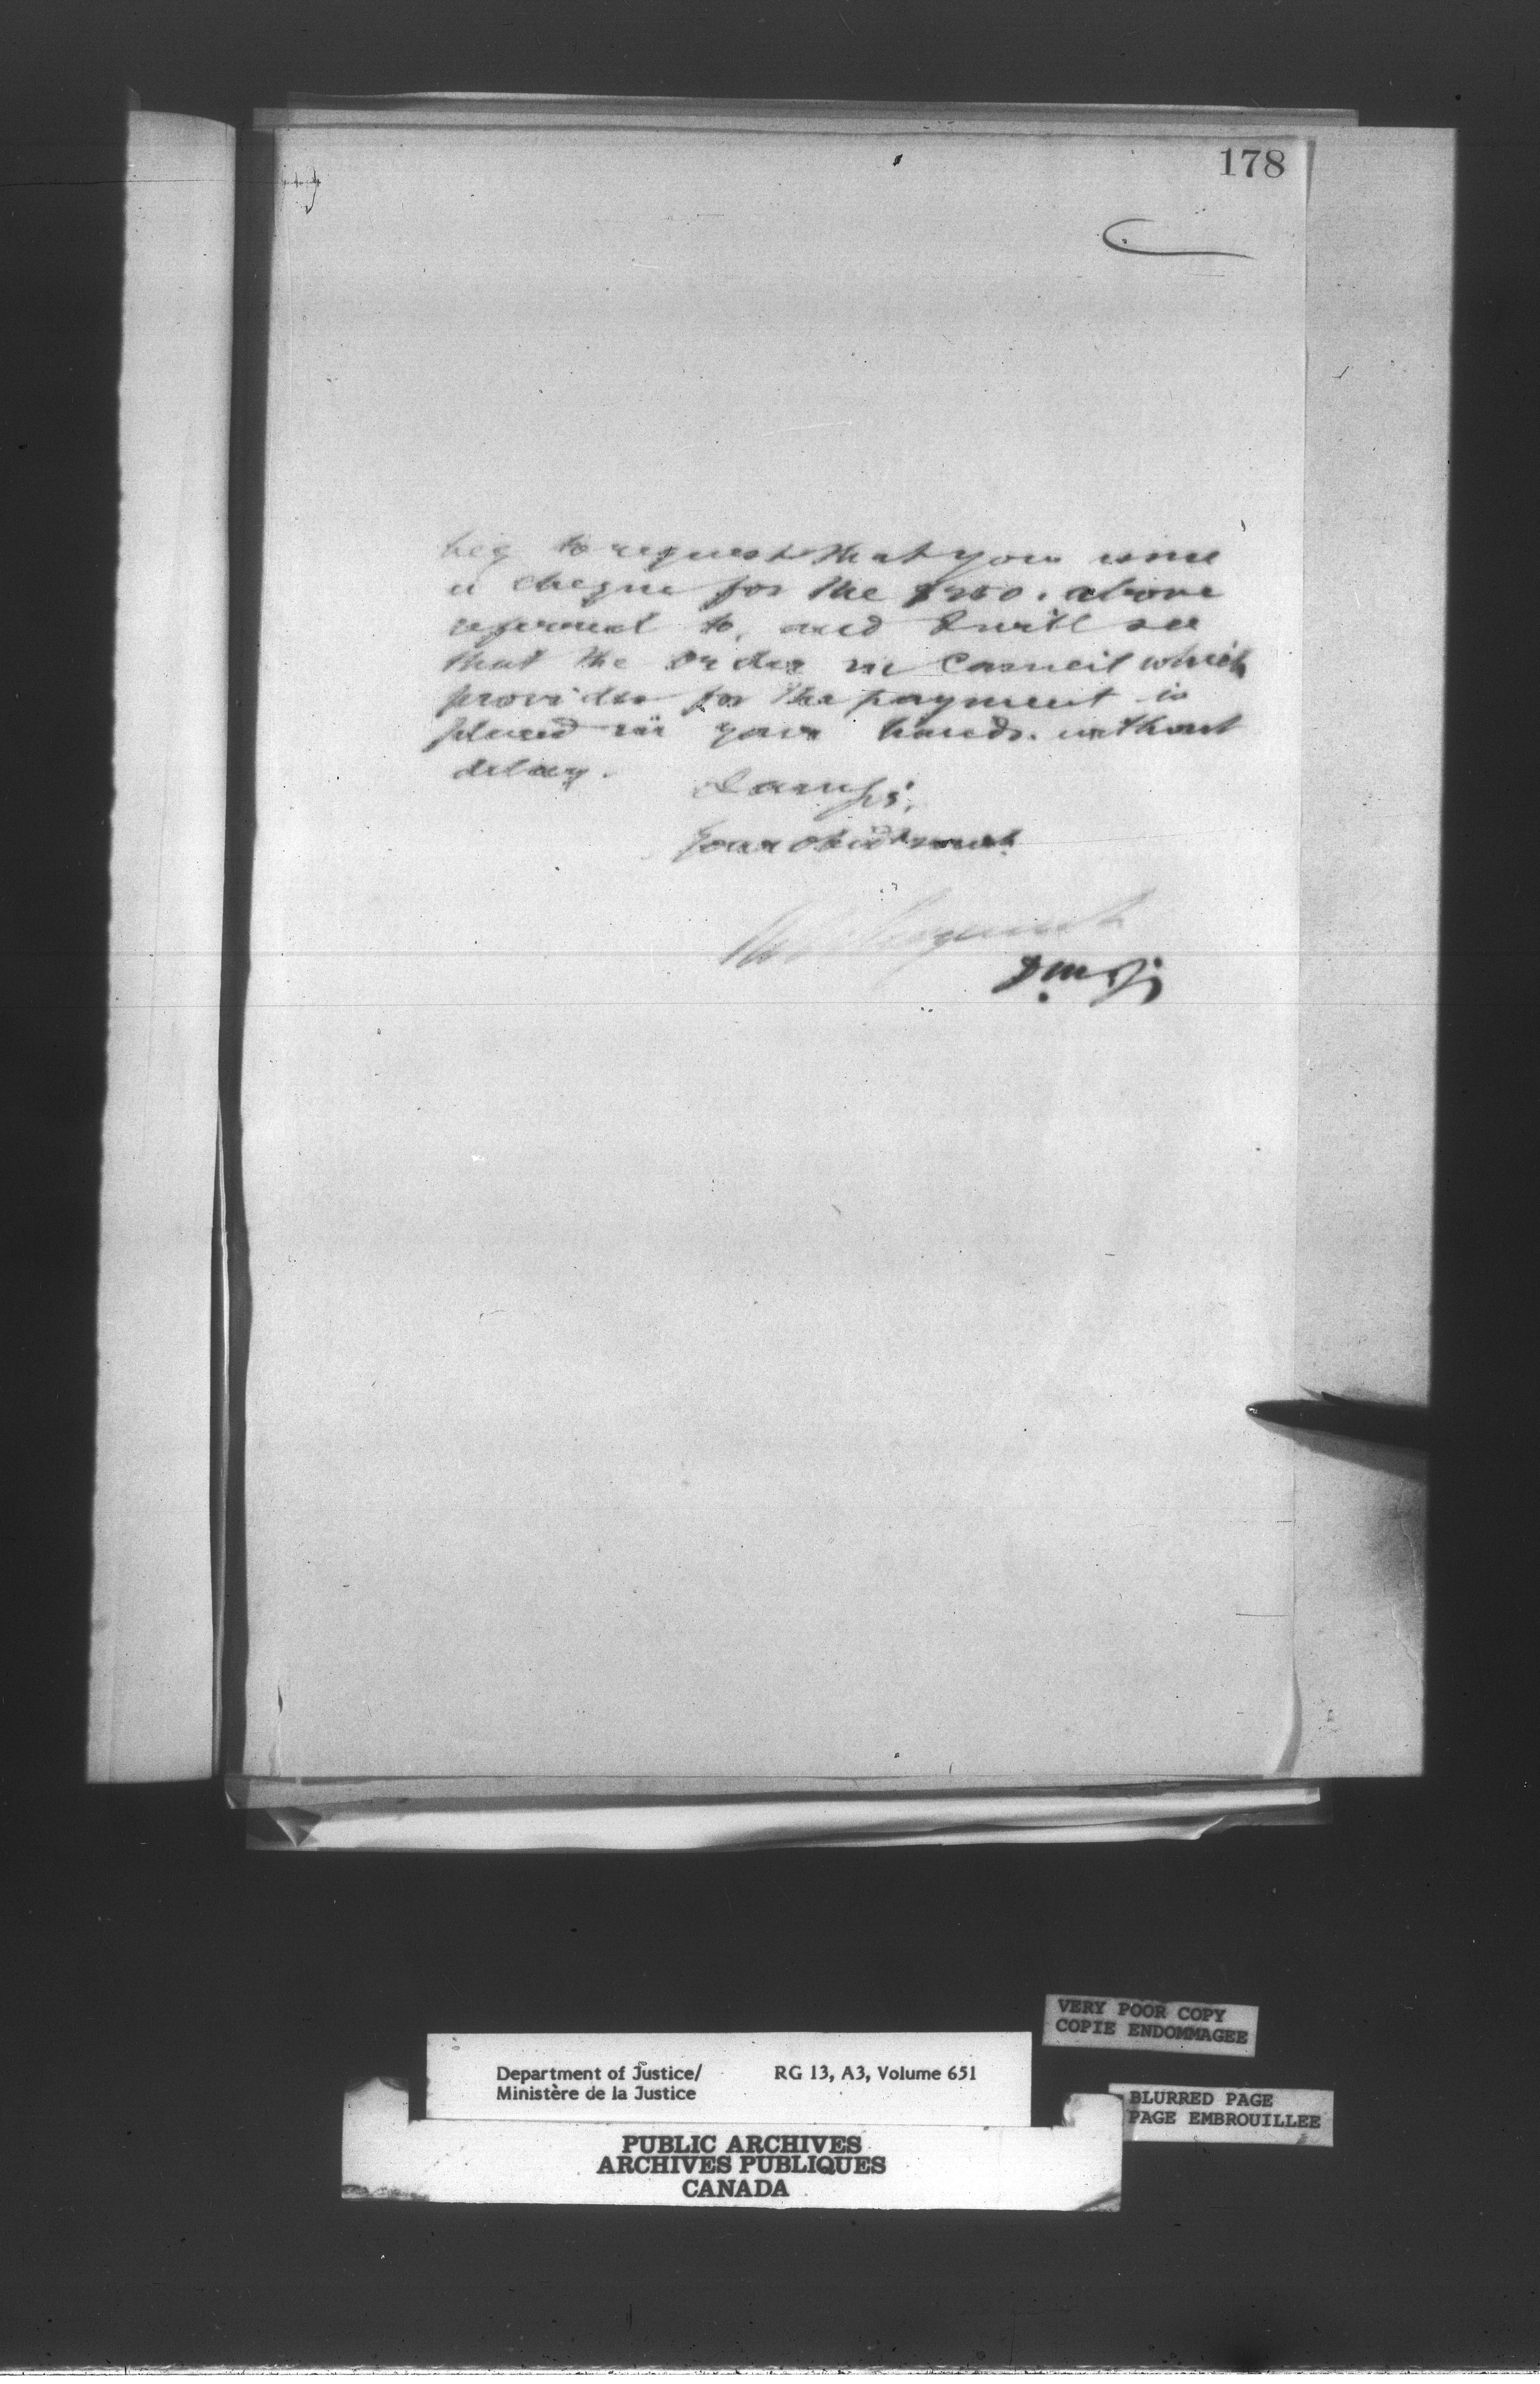 178
beg to request that you issue
a cheque for the $250. above
referred to, and I will see
that the Order in Council which
provides for the payment is
placed in your hands without
delay.
I am Sir,
Your obedt servant
D.M.J.
VERY POOR COPY
COPIE ENDOMMAGEE
Department of Justice/ RG 13, A3, Volume 651
Ministère de la Justice
BLURRED PAGE
PAGE EMBROUILLEE
PUBLIC ARCHIVES
ARCHIVES PUBLIQUES
CANADA